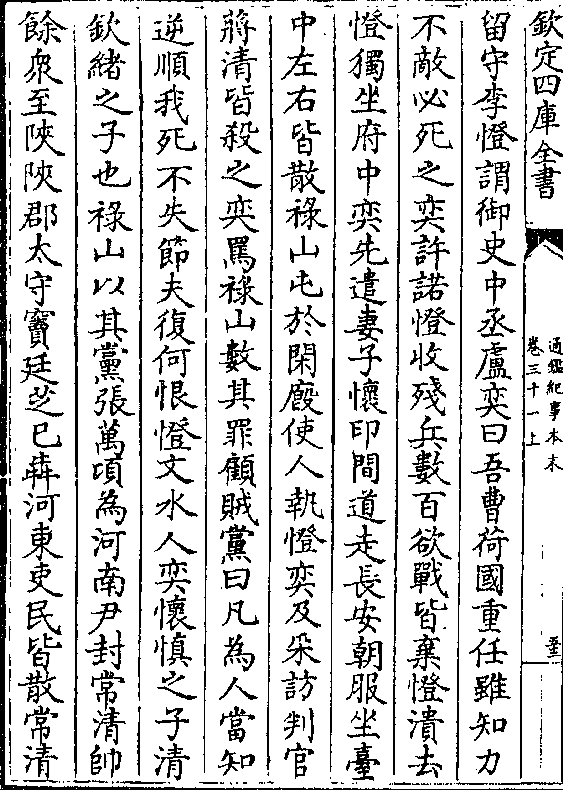 欽定四庫全書
通鑑紀事本末
卷三十一上
留守李憕謂御史中丞盧奕曰吾曹荷國重任雖知力
不敵必死之奕許諾憕收殘兵數百欲戰皆棄憕潰去
憕獨坐府中奕先遣妻子懷印間道走長安朝服坐臺
中左右皆散祿山屯於閑廐使人執憕奕及采訪判官
蔣清皆殺之奕罵祿山數其罪顧賊黨曰凡為人當知
逆順我死不失節夫復何恨憕文水人奕懷慎之子清
欽緒之子也祿山以其黨張萬項為河南尹封常清帥
餘衆至陜陜郡太守竇廷芝已犇河東吏民皆散常清